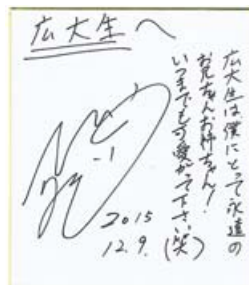 広大生へ
広大生は僕にとって永遠の
お兄ちゃんお姉ちゃん！
いつまでも可愛がって下さい(笑)
2015
12.9.